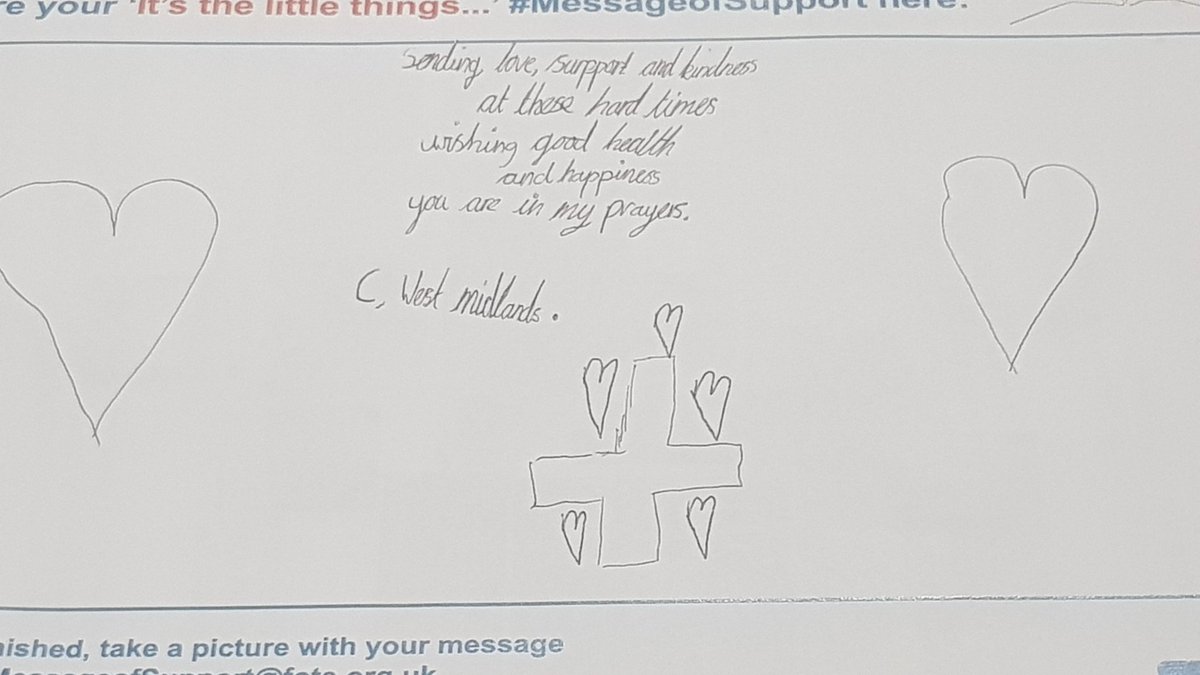 re your 'It's the little things...' #MessageofSupport here:
Sending love, surpport and kindness
at these hard times
wishing good health
and happiness
you are in my prayers.
C, West midlands.
nished, take a picture with your message
MessageofSupport@fote.org.uk